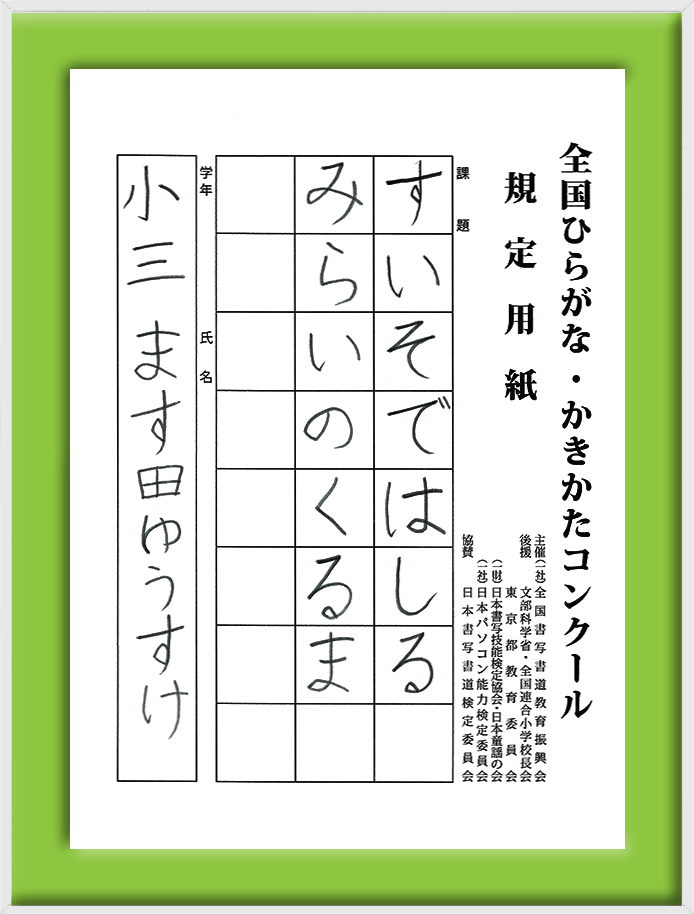 全国ひらがな・かきかたコンクール
規定用紙
主催(一社)全国書写書道教育振興会
後援 文部科学省・全国連合小学校長会
東京都教育委員会
(一財)日本書写技能検定協会・日本童謡の会
(一社)日本パソコン能力検定委員会
協賛 日本書写書道検定委員会
課題
すいそではしる
みらいのくるま
学年 氏名
小三 ます田ゆうすけ